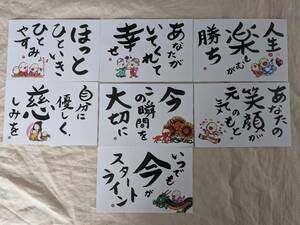 ほっと
ひといき
ひとやすみ
あなたが
いてくれて
幸せ
人生
楽しむが
勝ち
自分に
優しく
慈しみを
今
この瞬間を
大切に
あなたの
笑顔が
のもと
いつでも
今が
スタート
ライン